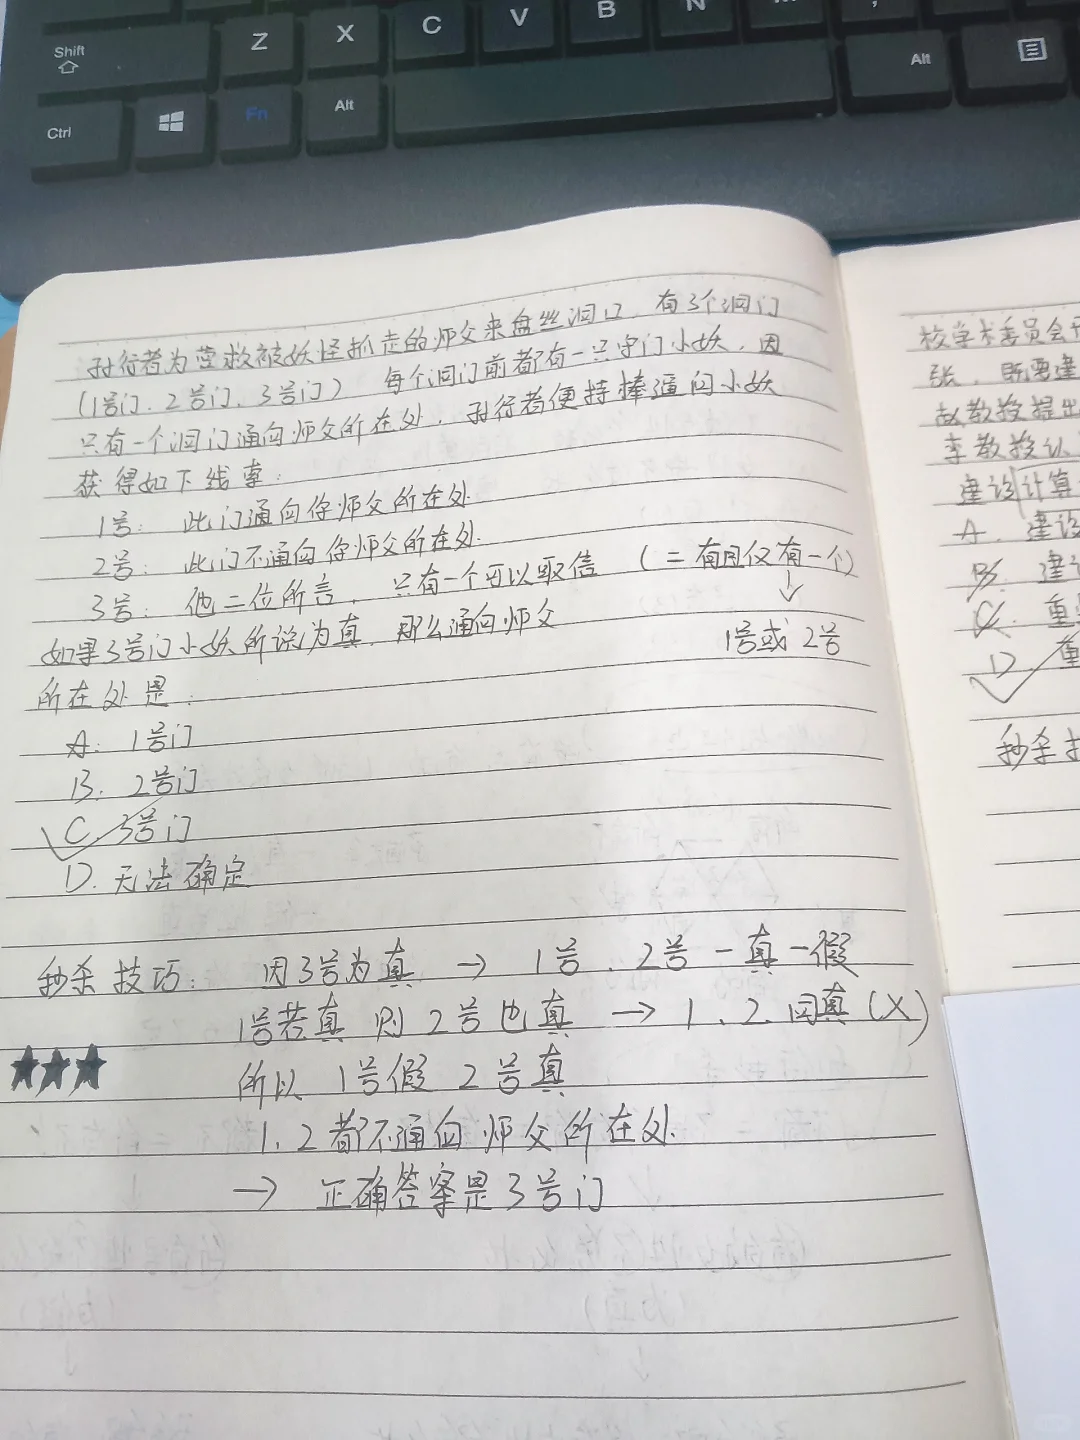 Shift
Z
X
C
V
B
N
Alt
Ctrl
Fn
Alt
孙行者为营救被妖怪抓走的师父来盘丝洞口，有3个洞门
（1号门、2号门、3号门） 每个洞门前都有一只守门小妖，因
只有一个洞门通向师父所在处，孙行者便持棒逼问小妖
获得如下线索：
1号： 此门通向你师父所在处
2号： 此门不通向你师父所在处.
3号： 他二位所言，只有一个可以取信 （=有且仅有一个）
↓
1号或2号
如果3号门小妖所说为真，那么通向师父
所在处是：
A: 1号门
B. 2号门
C. 3号门
D. 无法确定
秒杀技巧： 因3号为真 → 1号、2号一真一假
1号若真 则2号也真 → 1、2.同真(X)
所以 1号假 2号真
1.2都不通向师父所在处.
→ 正确答案是3号门
校学术委员会
张，既要建
赵教授提出
李教授认
建设计算
A. 建设
B. 建
C. 重
D. 重
秒杀技